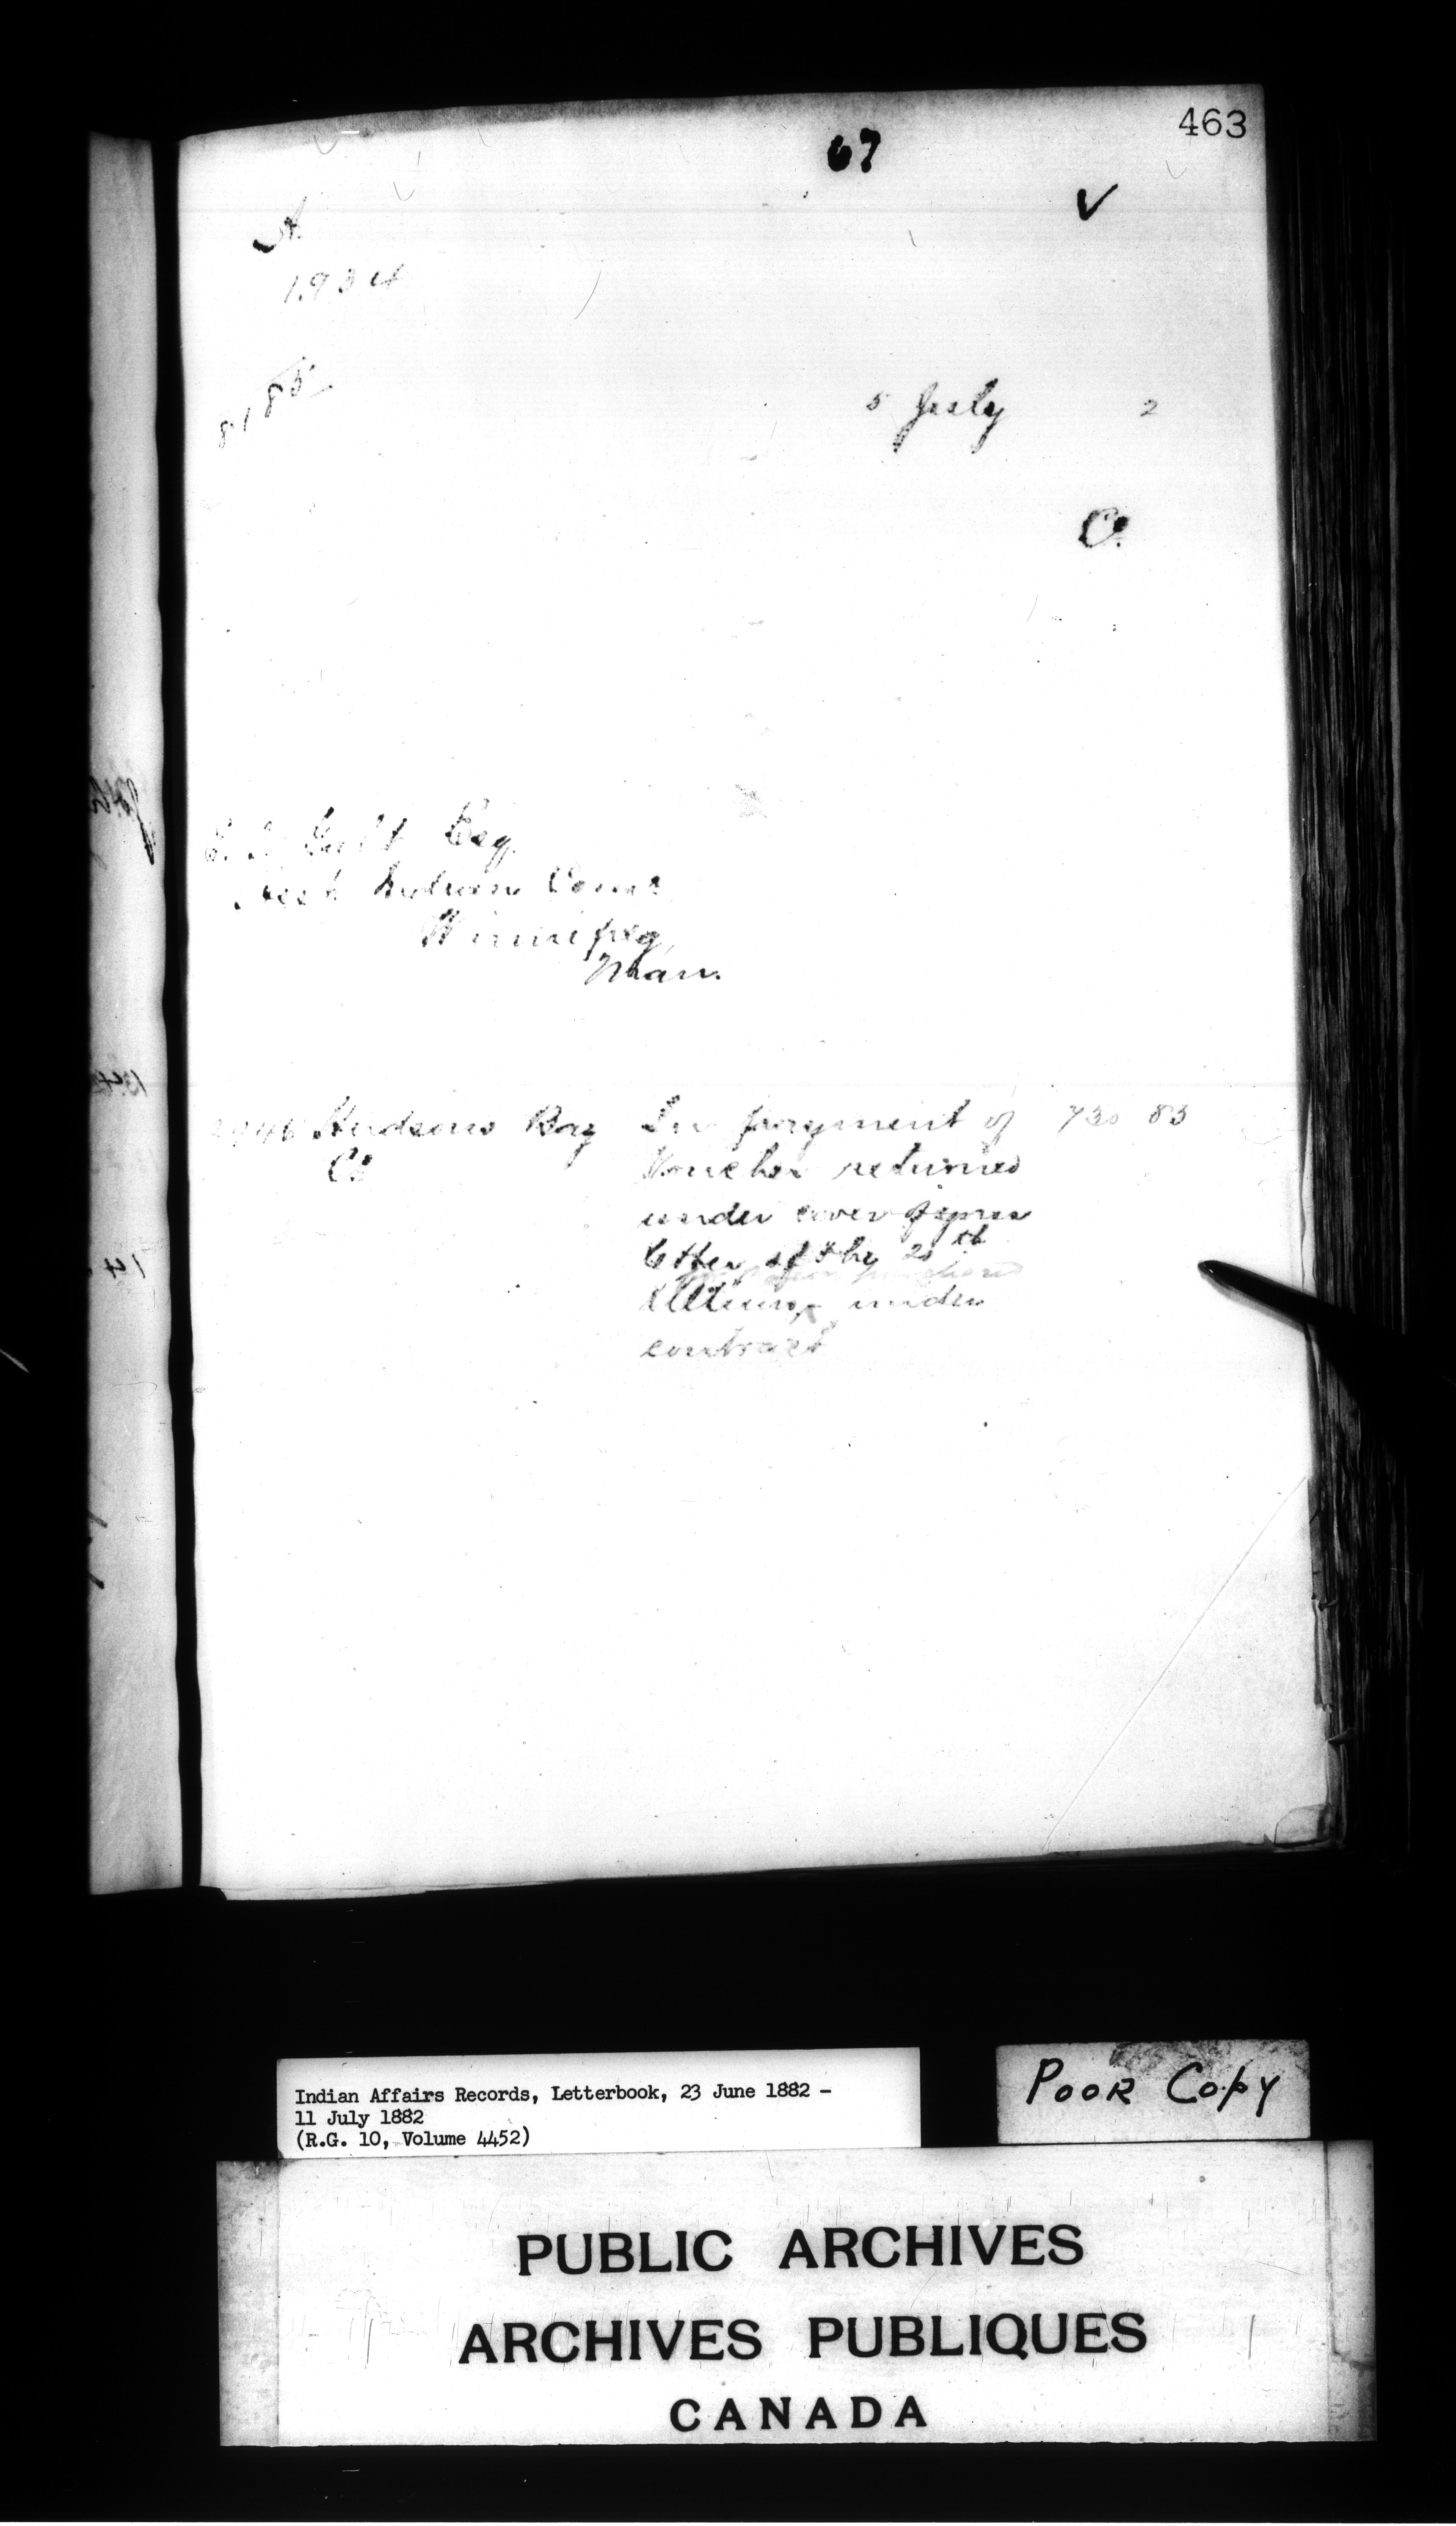 463
67
V
A.
1934
8185
5 July 2
C.
E. T. Galt Esq.
Asst Indian Comr
Winnipeg,
Man.
Hudsons Bay In payment of 730 83
Co. Voucher returned
under cover of your
letter of the 20th
Ultimo, under
contract
Indian Affairs Records, Letterbook, 23 June 1882 -
11 July 1882
(R.G. 10, Volume 4452)
POOR COPY
PUBLIC ARCHIVES
ARCHIVES PUBLIQUES
CANADA